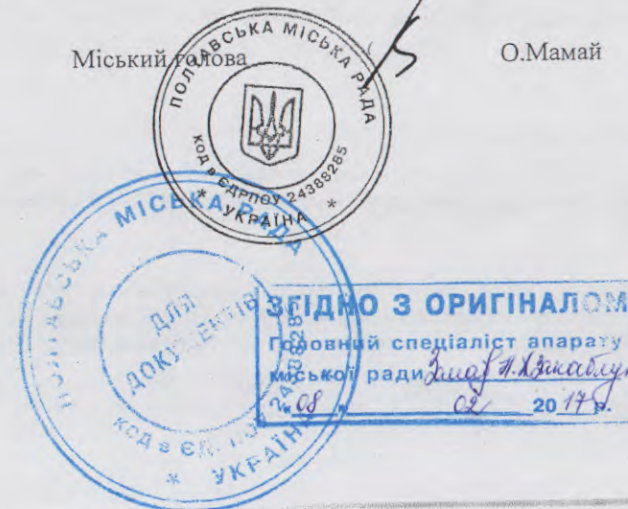 Міський голова О.Мамай
ПОЛТАВСЬКА МІСЬКА РАДА
КОД в ЄДРПОУ 24388285
* УКРАЇНА *
ПОЛТАВСЬКА МІСЬКА РАДА
ДЛЯ
ДОКУМЕНТІВ
* УКРАЇНА
ЗГІДНО З ОРИГІНАЛОМ
Головний спеціаліст апарату
міської ради
"08" 02 2017 р.